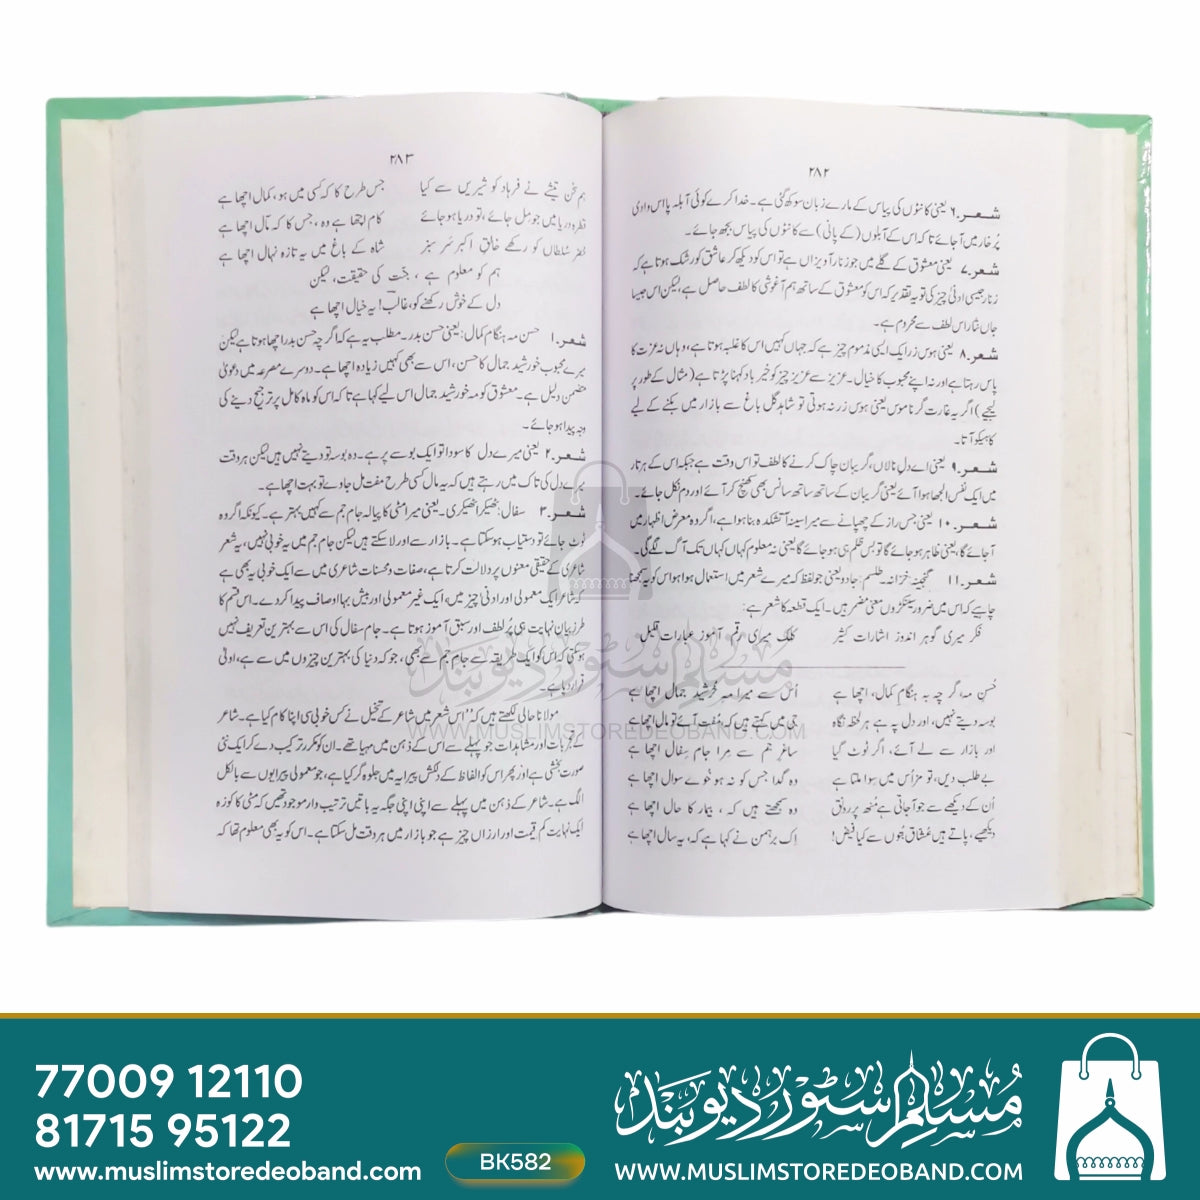 ۲۸۲
شعر.۶ یعنی کانٹوں کی پیاس کے مارے زبان سوکھ گئی ہے۔ خدا کرے کوئی آبلہ پا اس وادی
پُرخار میں آجائے تاکہ اس کے آبلوں (کے پانی) سے کانٹوں کی پیاس بجھ جائے۔
شعر.۷ یعنی معشوق کے گلے میں جو زنار آویزاں ہے تو اس کو دیکھ کر عاشق کو رشک ہوتا ہے کہ
زنار جیسی ادنیٰ چیز کی تو یہ تقدیر کہ اس کو معشوق کے ساتھ ہم آغوشی کا لطف حاصل ہے، لیکن اس جیسا
جاں نثار اس لطف سے محروم ہے۔
شعر.۸ یعنی ہوس زر ایک ایسی مذموم چیز ہے کہ جہاں کہیں اس کا غلبہ ہوتا ہے، وہاں نہ عزت کا
پاس رہتا ہے اور نہ اپنے محبوب کا خیال۔ عزیز سے عزیز چیز کو خیر باد کہنا پڑتا ہے (مثال کے طور پر
لیجیے) اگر یہ غارت گر ناموس یعنی ہوس زر نہ ہوتی تو شاہد گل باغ سے بازار میں بکنے کے لیے
کاہیکو آتا۔
شعر.۹ یعنی اے دلِ نالاں، گریباں چاک کرنے کا لطف تو اس وقت ہے جبکہ اس کے ہر تار
میں ایک نفس الجھا ہوا آئے یعنی گریباں کے ساتھ ساتھ سانس بھی کھنچ کر آئے اور دم نکل جائے۔
شعر.۱۰ یعنی جس راز کے چھپانے سے میرا سینہ آتشکدہ بنا ہوا ہے، اگر وہ معرض اظہار میں
آجائے گا، یعنی ظاہر ہوجائے گا تو بس ظلم ہی ہوجائے گا یعنی نہ معلوم کہاں کہاں تک آگ لگے گی۔
شعر.۱۱ گنجینہ: خزانہ۔ طلسم: جادو یعنی جو لفظ کہ میرے شعر میں استعمال ہوا ہو اس کو یہ سمجھنا
چاہیے کہ اس میں ضرور سینکڑوں معنی مضمر ہیں۔ ایک قطعہ کا شعر ہے:
فکر میری گوہر اندوز اشارات کثیر کلک میری رقم آموز عبارات قلیل
حُسنِ مہ، گر چہ بہ ہنگامِ کمال، اچھا ہے اُس سے میرا مہِ خُرشید جمال اچھا ہے
بوسہ دیتے نہیں، اور دل پہ ہے ہر لحظہ نگاہ جی میں کہتے ہیں کہ، مُفت آئے تو مال اچھا ہے
اور بازار سے لے آئے، اگر ٹوٹ گیا ساغرِ جم سے مِرا جامِ سِفال اچھا ہے
بے طلب دیں، تو مزاُس میں سِوا ملتا ہے وہ گدا جس کو نہ ہو خُوے سوال اچھا ہے
اُن کے دیکھے سے جو آجاتی ہے مُنھ پر رونق وہ سمجھتے ہیں کہ، بیمار کا حال اچھا ہے
دیکھیے، پاتے ہیں عُشّاق بُتوں سے کیا فیض! اِک برہمن نے کہا ہے کہ، یہ سال اچھا ہے
۲۸۳
ہم سخن تیشے نے فرہاد کو شیریں سے کیا جس طرح کا کہ کسی میں ہو، کمال اچھا ہے
قطرہ دریا میں جو مِل جائے، تو دریا ہو جائے کام اچھا ہے وہ، جس کا کہ مآل اچھا ہے
خضر سُلطاں کو رکھے خالقِ اکبر سَرسبز شاہ کے باغ میں یہ تازہ نہال اچھا ہے
ہم کو معلوم ہے، جنّت کی حقیقت، لیکن
دل کے خوش رکھنے کو، غالب! یہ خیال اچھا ہے
شعر.۱ حسن مہ ہنگام کمال: یعنی حسن بدر۔ مطلب یہ ہے کہ اگرچہ حسن بدر اچھا ہوتا ہے لیکن
میرے محبوب خورشید جمال کا حسن، اس سے بھی کہیں زیادہ اچھا ہے۔ دوسرے مصرعہ میں دعویٰ
متضمن دلیل ہے۔ معشوق کو مہ خورشید جمال اس لیے کہا ہے تاکہ اس کو ماہ کامل پر ترجیح دینے کی
وجہ پیدا ہو جائے۔
شعر.۲ یعنی میرے دل کا سودا تو ایک بوسے پر ہے۔ وہ بوسہ تو دیتے نہیں ہیں لیکن ہر وقت
میرے دل کی تاک میں رہتے ہیں کہ یہ مال کسی طرح مفت مل جاوے تو بہت اچھا ہے۔
شعر.۳ سفال: ٹھیکرا ٹھیکری۔ یعنی میرا مٹی کا پیالہ جام جم سے کہیں بہتر ہے۔ کیونکہ اگر وہ
ٹوٹ جائے تو دستیاب ہوسکتا ہے۔ بازار سے اور لاسکتے ہیں لیکن جام جم میں یہ خوبی نہیں، یہ شعر
شاعری کے حقیقی معنوں پر دلالت کرتا ہے، صفات و محسنات شاعری میں سے ایک خوبی یہ بھی ہے
کہ شاعر ایک معمولی اور ادنیٰ چیز میں، ایک غیر معمولی اور بیش بہا اوصاف پیدا کر دے۔ اس قسم کا
طرز بیان نہایت ہی پُر لطف اور سبق آموز ہوتا ہے۔ جام سفال کی اس سے بہترین تعریف نہیں
ہوسکتی کہ اس کو ایک طریقہ سے جام جم سے بھی، جو کہ دنیا کی بہترین چیزوں میں سے ہے، اولیٰ
قرار دیا ہے۔
مولانا حالی لکھتے ہیں کہ "اس شعر میں شاعر کے تخیل نے کس خوبی سی اپنا کام کیا ہے۔ شاعر
کے تجربات اور مشاہدات جو پہلے سے اس کے ذہن میں مہیا تھے۔ ان کو مکرر ترکیب دے کر ایک نئی
صورت بخشی ہے اور پھر اس کو الفاظ کے دلکش پیرایہ میں جلوہ گر کیا ہے، جو معمولی پیرایوں سے بالکل
الگ ہے۔ شاعر کے ذہن میں پہلے سے اپنی اپنی جگہ یہ باتیں ترتیب وار موجود تھیں کہ مٹی کا کوزہ
ایک نہایت کم قیمت اور ارزاں چیز ہے جو بازار میں ہر وقت مل سکتا ہے۔ اس کو یہ بھی معلوم تھا کہ
مسلم سٹور دیوبند
WWW.MUSLIMSTOREDEOBAND.COM
77009 12110
81715 95122
www.muslimstoredeoband.com
BK582
مسلم سٹور دیوبند
WWW.MUSLIMSTOREDEOBAND.COM